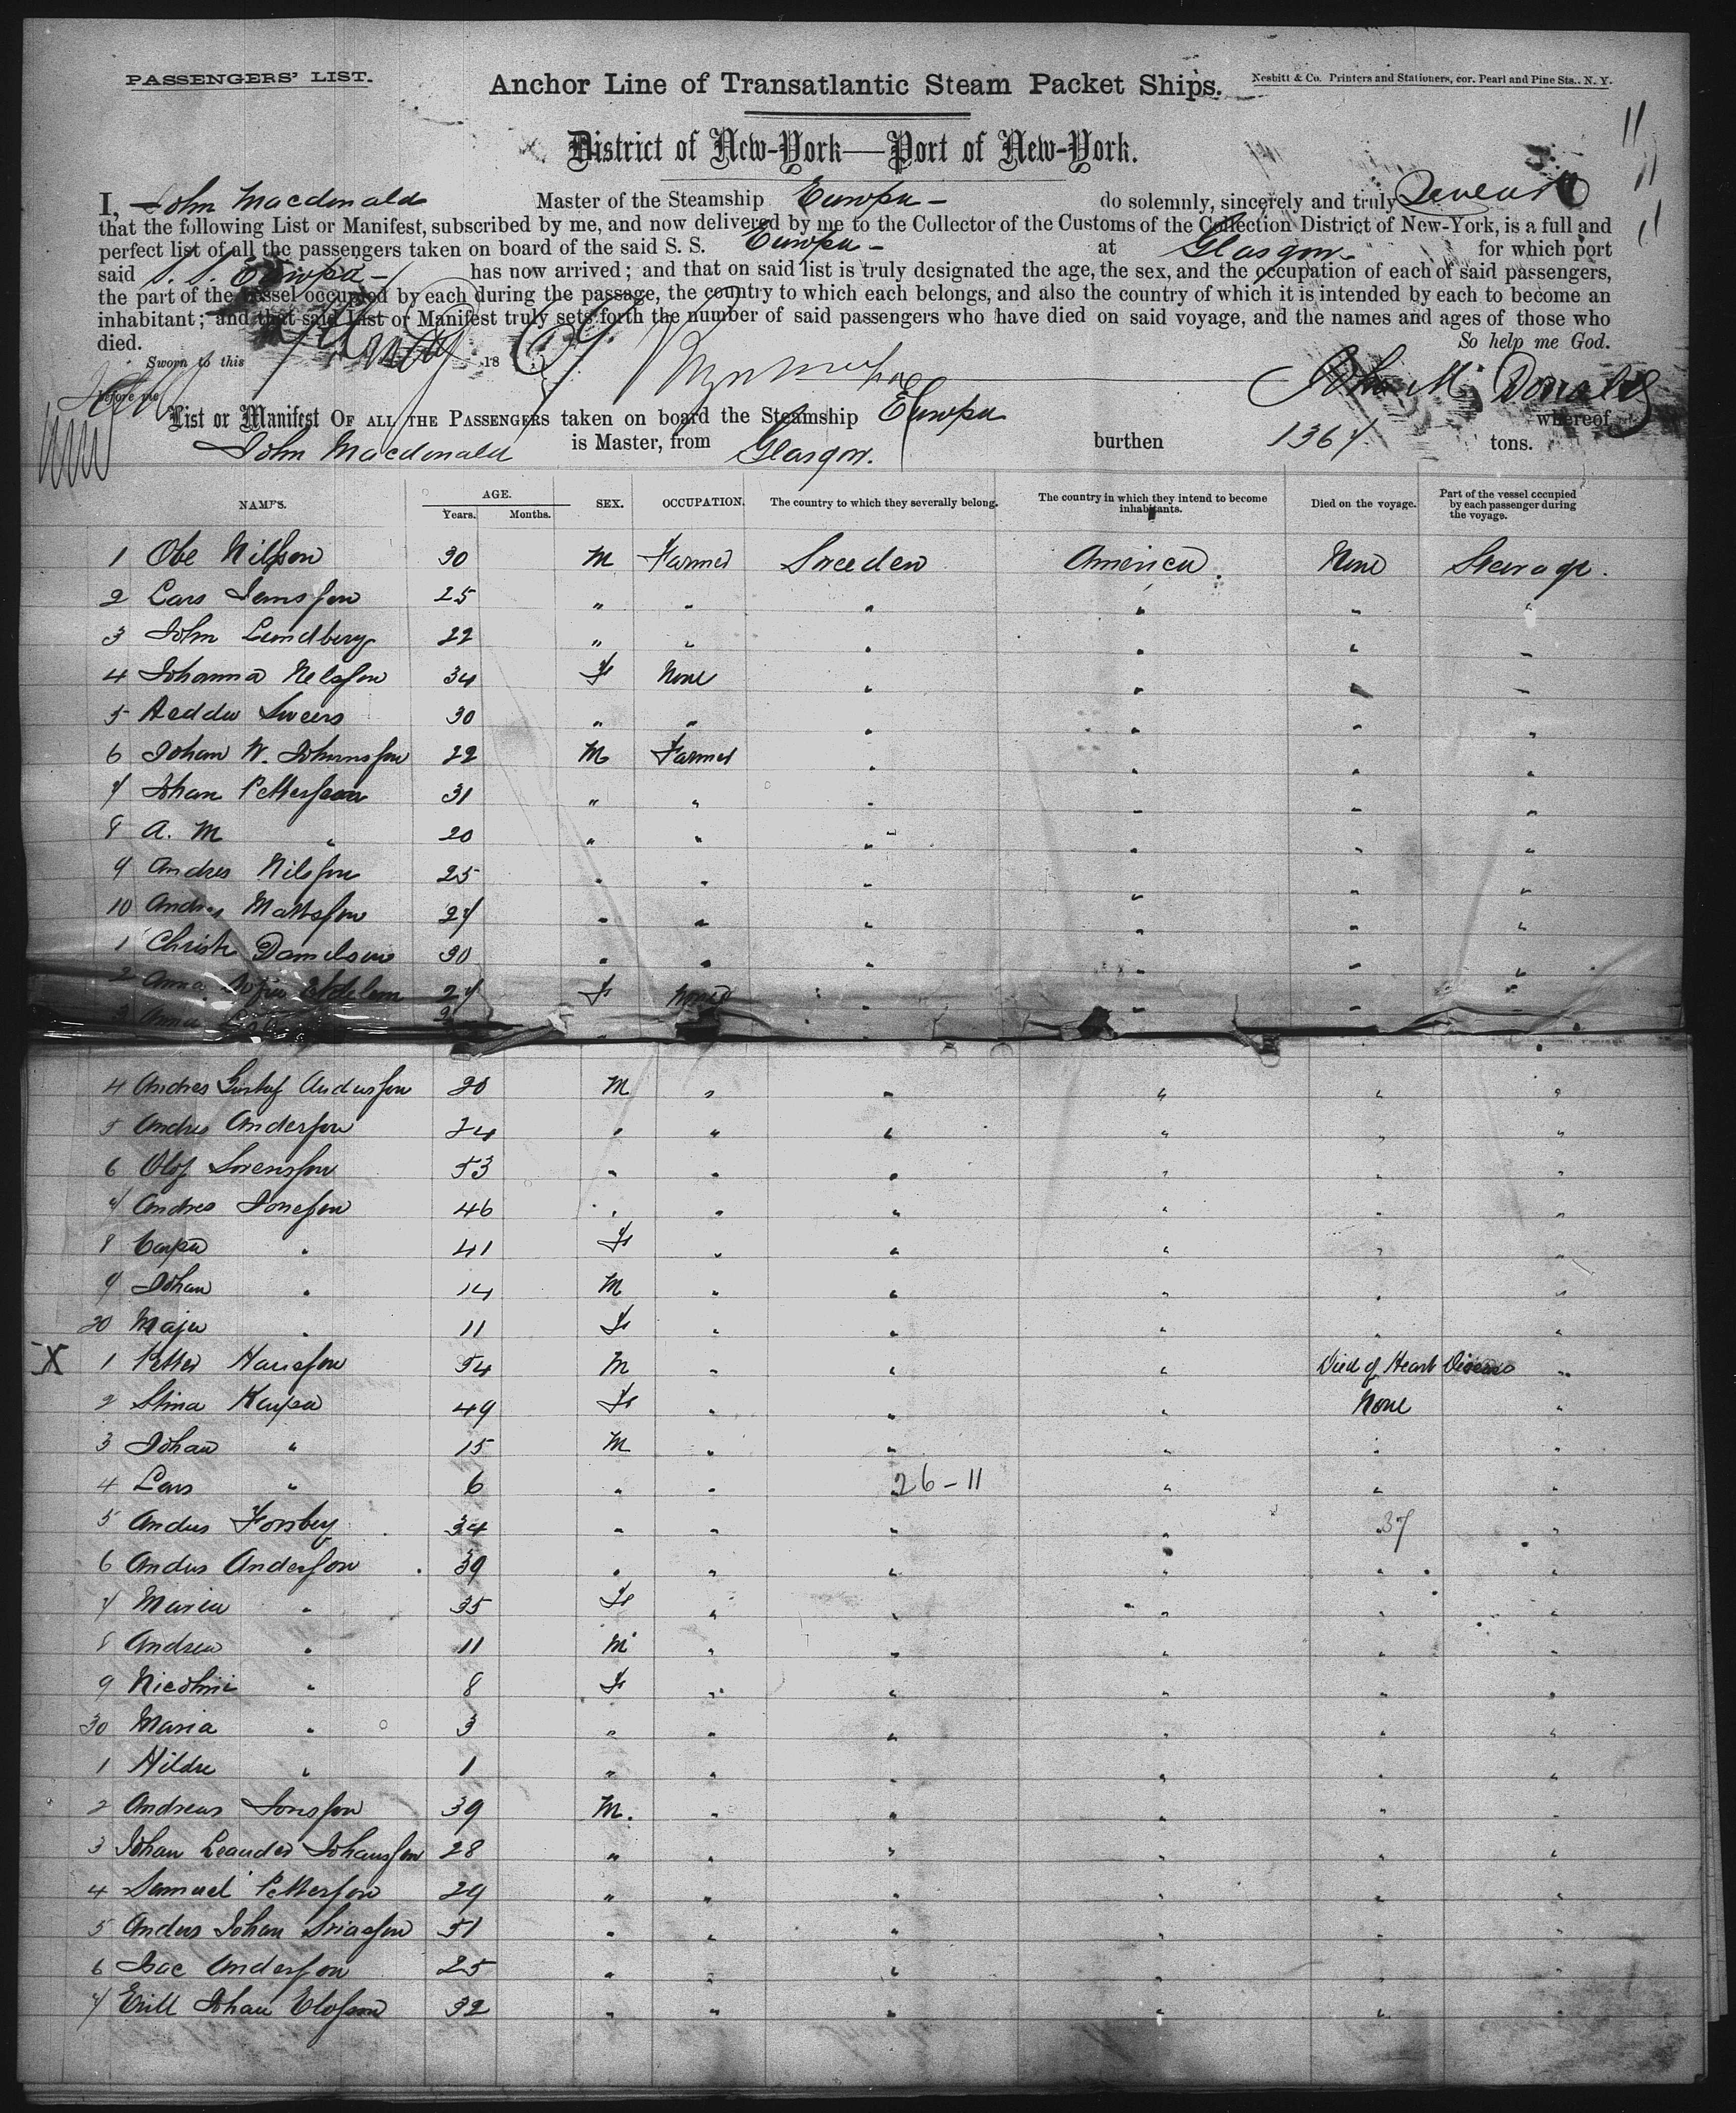 PASSENGERS' LIST.
Anchor Line of Transatlantic Steam Packet Ships.
Nesbitt & Co. Printers and Stationers, cor. Pearl and Pine Sts., N. Y.
District of New-York—Port of New-York.
I, John Macdonald Master of the Steamship Europa do solemnly, sincerely and truly Swear
that the following List or Manifest, subscribed by me, and now delivered by me to the Collector of the Customs of the Collection District of New-York, is a full and
perfect list of all the passengers taken on board of the said S. S. Europa at Glasgow for which port
said S. S. Europa has now arrived; and that on said list is truly designated the age, the sex, and the occupation of each of said passengers,
the part of the vessel occupied by each during the passage, the country to which each belongs, and also the country of which it is intended by each to become an
inhabitant; and that said List or Manifest truly sets forth the number of said passengers who have died on said voyage, and the names and ages of those who
died. So help me God.
Sworn to this May 1869
before me John McDonald
List or Manifest OF ALL THE PASSENGERS taken on board the Steamship Europa whereof
John Macdonald is Master, from Glasgow. burthen 1367 tons.
NAMES. AGE. Years. Months. SEX. OCCUPATION. The country to which they severally belong. The country in which they intend to become inhabitants. Died on the voyage. Part of the vessel occupied by each passenger during the voyage.
1 Obe Nilsson 30 M Farmer Sweeden America None Steerage.
2 Lars Jemsson 25 " " " " " "
3 John Lundberg 22 " " " " " "
4 Johanna Nelsson 34 F None " " " "
5 30 " " " " " "
6 Johan W. Johnnsson 22 M Farmer " " " "
7 Johan Pettersson 31 " " " " " "
8 A. M " 20 " " " " " "
9 Andres Nilsson 25 " " " " " "
10 Andres Mattsson 27 " " " " " "
1 Christe Danielson 30 " " " " " "
2 Anna 27 F None " " " "
3 Anna
4 Andres Gustaf Andersson 20 M " " " " "
5 Andres Andersson 24 " " " " " "
6 Olof Svensson 53 " " " " " "
7 Andres Jonesson 46 " " " " " "
8 Cajsa " 41 F " " " " "
9 Johan " 14 M " " " " "
20 Maja " 11 F " " " " "
X 1 Petter Hansson 54 M " " " Died of Heart Disease "
2 Stina Kajsa 49 F " " " None "
3 Johan " 15 M " " " " "
4 Lars " 6 " " 26-11 " " "
5 Andus Forsberg 34 " " " " 37 "
6 Andus Andersson 39 " " " " " "
7 Maria " 35 F " " " " "
8 Andrew " 11 M " " " " "
9 " 8 F " " " " "
30 Maria " 3 " " " " " "
1 Hilda " 1 " " " " " "
2 Andreas Jonsson 39 M. " " " " "
3 Johan Leander Johansson 28 " " " " " "
4 Samuel Pettersson 29 " " " " " "
5 Anders Johan 51 " " " " " "
6 Isac Andersson 25 " " " " " "
7 Johan Olofsson 32 " " " " " "